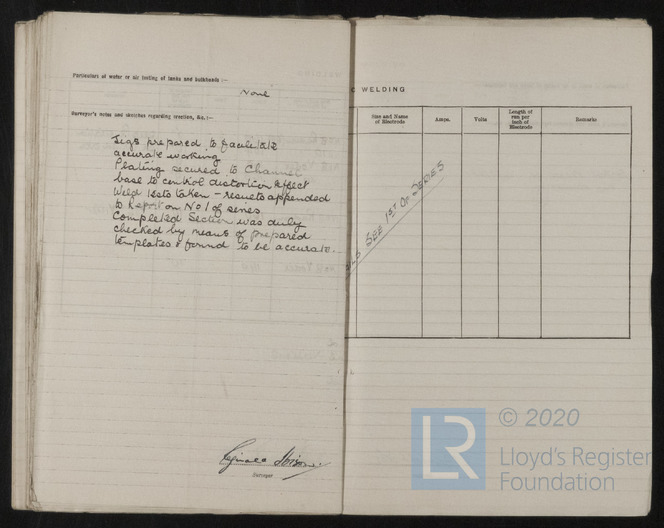 Particulars of water or air testing of tanks and bulkheads :—
None
Surveyor's notes and sketches regarding erection, &c. :—
Jigs prepared to facilitate
accurate working
Plating secured to Channel
base to control distortion effect
Weld tests taken - results appended
to Report on No 1 of series
Completed Section was duly
checked by means of prepared
templates & found to be accurate.
Reginald
Surveyor
C WELDING
Size and Name
of Electrode
Amps.
Volts
Length of
run per
inch of
Electrode
Remarks
SEE 1ST OF SERIES
© 2020
LR
Lloyd's Register
Foundation